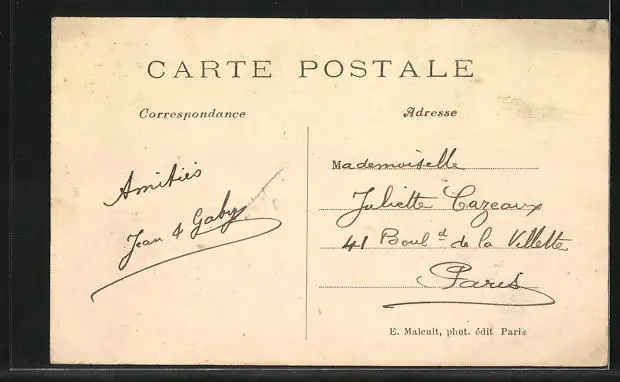 CARTE POSTALE
Correspondance
Adresse
Amitiés
Jean & Gaby
Mademoiselle
Juliette Cazeaux
41 Boul.d de la Villette
Paris
E. Malcuit, phot. édit Paris